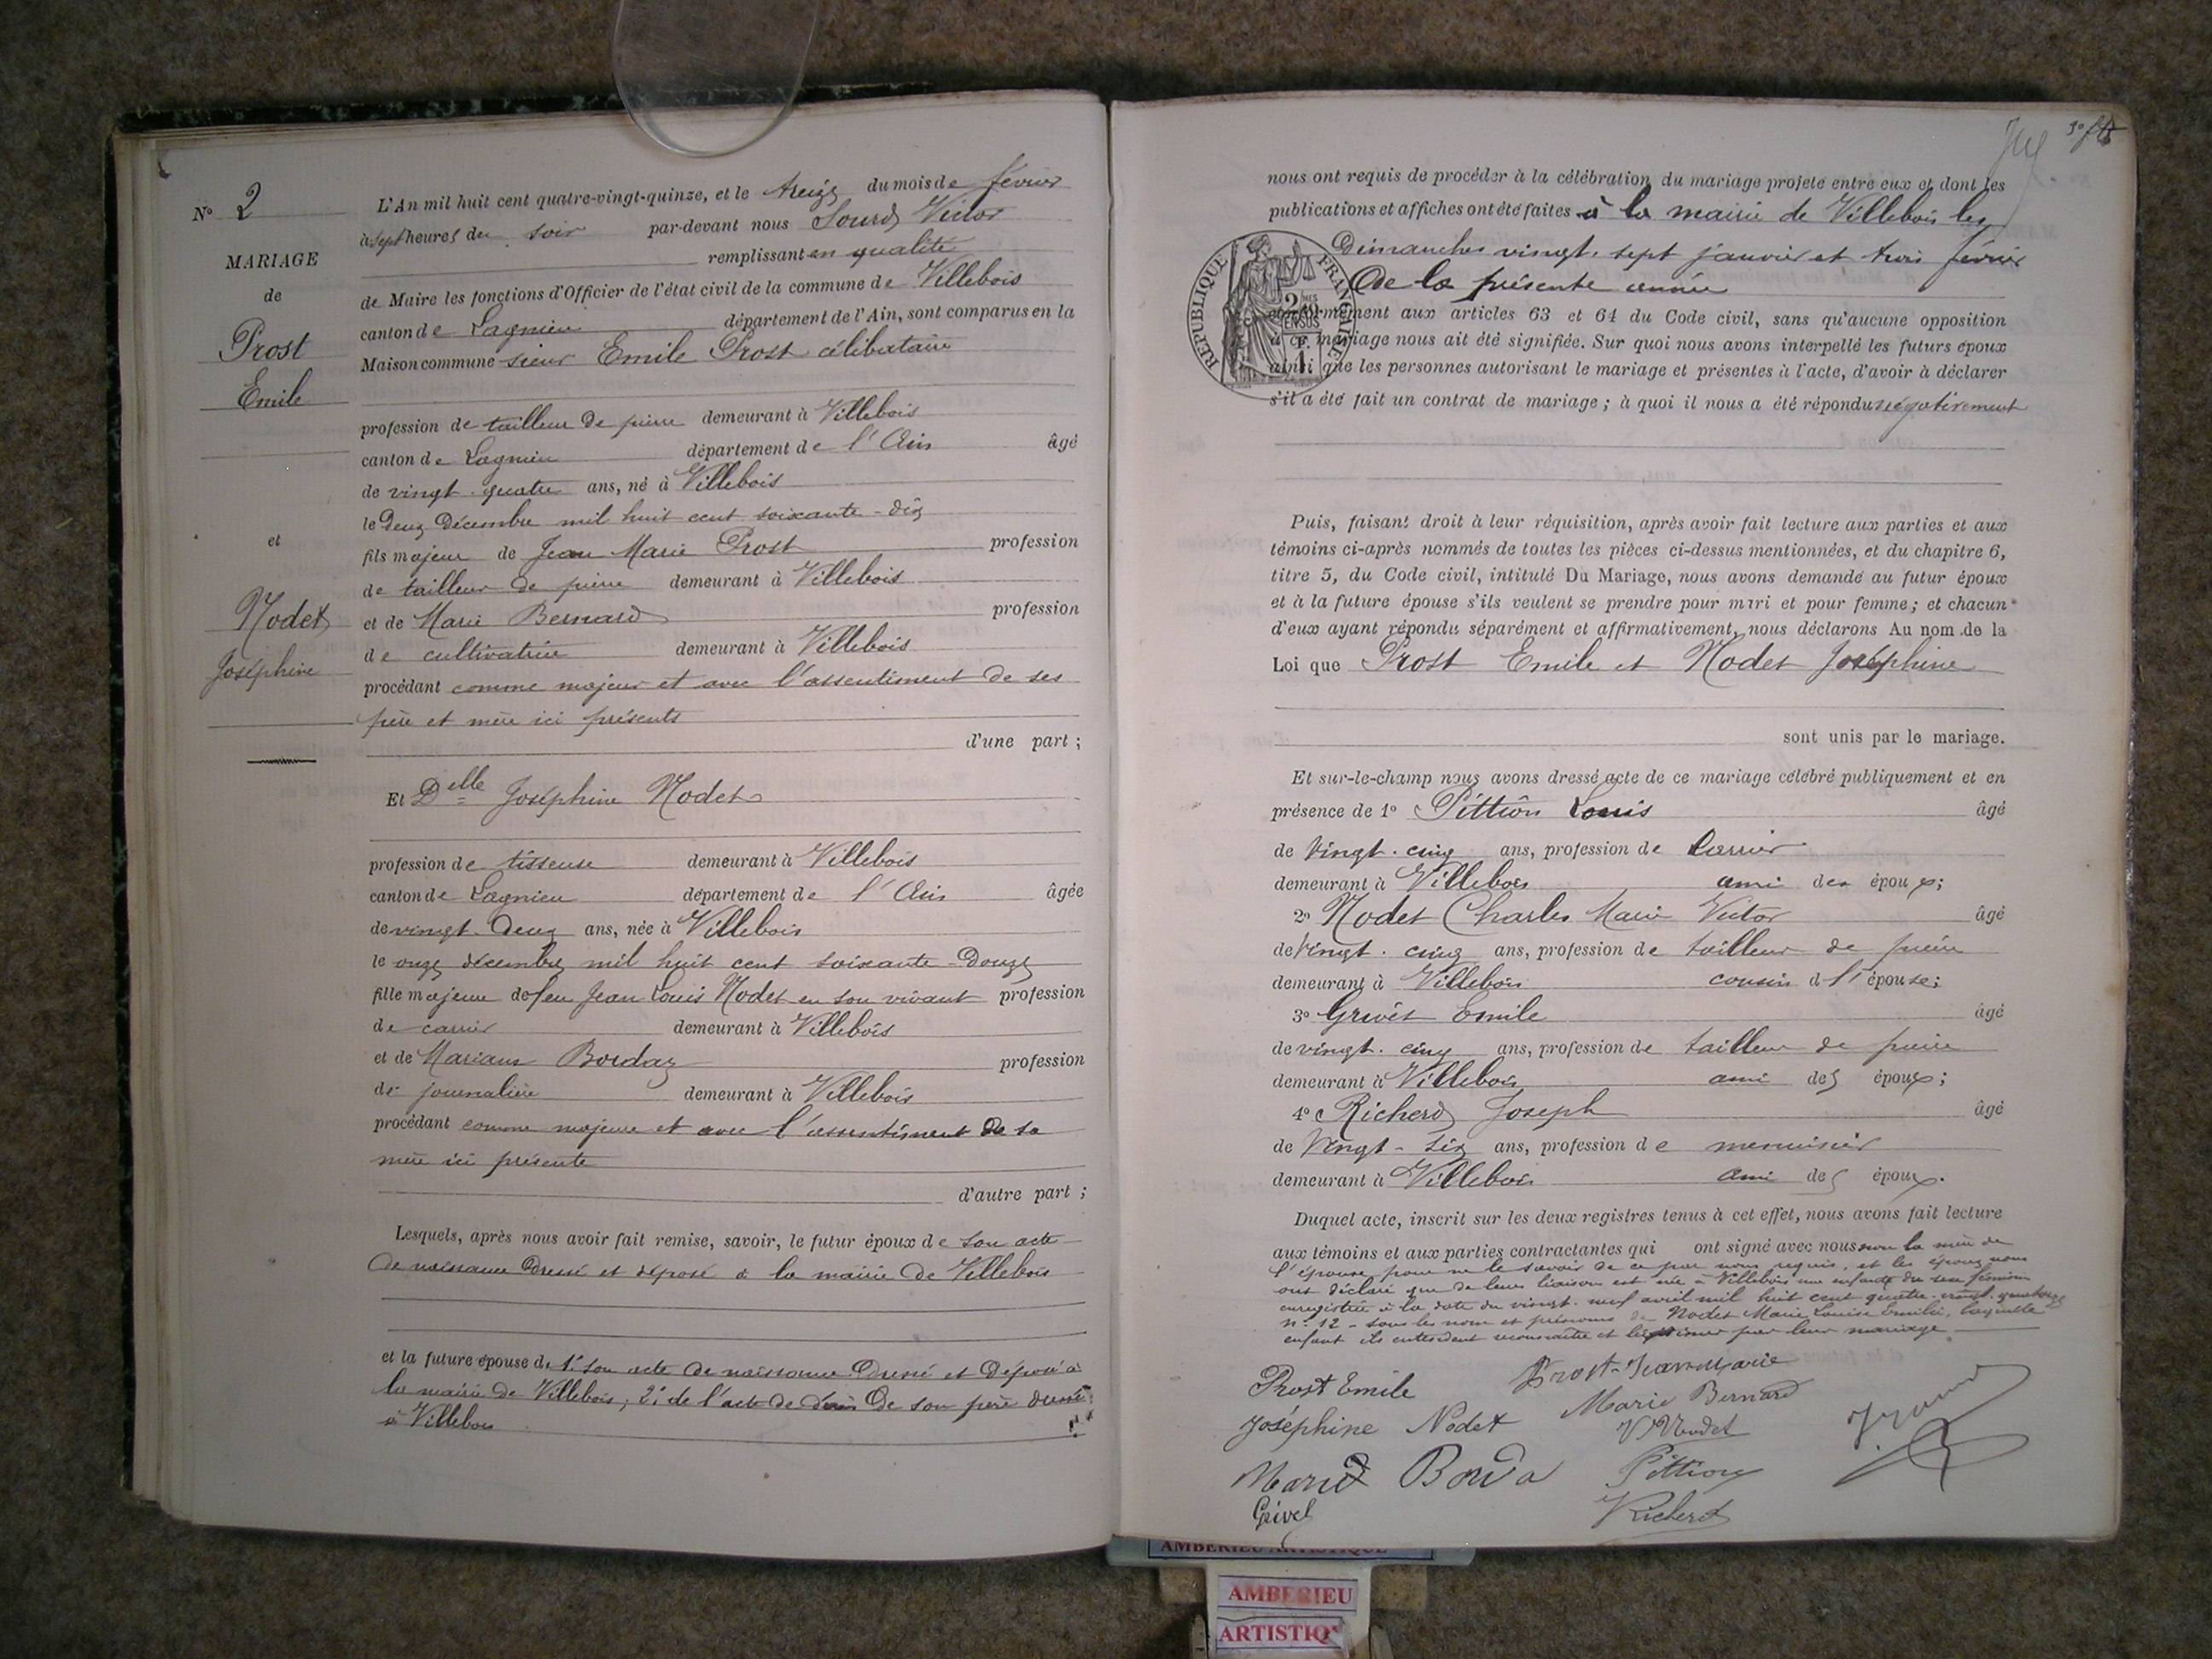 N° 2
MARIAGE
de
Prost
Emile
et
Nodet
Joséphine
L'An mil huit cent quatre-vingt-quinze, et le treize du mois de février
à sept heures du soir par-devant nous Sourd Victor
remplissant en qualité
de Maire les fonctions d'Officier de l'état civil de la commune de Villebois
canton de Lagnieu département de l'Ain, sont comparus en la
Maison commune sieur Emile Prost célibataire
profession de tailleur de pierre demeurant à Villebois
canton de Lagnieu département de l'Ain âgé
de vingt-quatre ans, né à Villebois
le deux décembre mil huit cent soixante-dix
fils majeur de Jean Marie Prost profession
de tailleur de pierre demeurant à Villebois
et de Marie Bernard profession
de cultivatrice demeurant à Villebois
procédant comme majeur et avec l'assentiment de ses
père et mère ici présents
d'une part ;
Et Delle Joséphine Nodet
profession de tisseuse demeurant à Villebois
canton de Lagnieu département de l'Ain âgée
de vingt-deux ans, née à Villebois
le onze décembre mil huit cent soixante-douze
fille majeure de feu Jean Louis Nodet en son vivant profession
de carrier demeurant à Villebois
et de Mariane Bordaz profession
de journalière demeurant à Villebois
procédant comme majeure et avec l'assentiment de sa
mère ici présente
d'autre part ;
Lesquels, après nous avoir fait remise, savoir, le futur époux de son acte
de naissance dressé et déposé à la mairie de Villebois
et la future épouse de 1° son acte de naissance dressé et déposé à
la mairie de Villebois ; 2° de l'acte de décès de son père dressé
à Villebois
nous ont requis de procéder à la célébration du mariage projeté entre eux et dont les
publications et affiches ont été faites à la mairie de Villebois les
dimanches vingt-sept janvier et trois février
de la présente année
RÉPUBLIQUE FRANÇAISE
conformément aux articles 63 et 64 du Code civil, sans qu'aucune opposition
à ce mariage nous ait été signifiée. Sur quoi nous avons interpellé les futurs époux
ainsi que les personnes autorisant le mariage et présentes à l'acte, d'avoir à déclarer
s'il a été fait un contrat de mariage ; à quoi il nous a été répondu négativement
Puis, faisant droit à leur réquisition, après avoir fait lecture aux parties et aux
témoins ci-après nommés de toutes les pièces ci-dessus mentionnées, et du chapitre 6,
titre 5, du Code civil, intitulé Du Mariage, nous avons demandé au futur époux
et à la future épouse s'ils veulent se prendre pour mari et pour femme ; et chacun
d'eux ayant répondu séparément et affirmativement, nous déclarons Au nom de la
Loi que Prost Emile et Nodet Joséphine
sont unis par le mariage.
Et sur-le-champ nous avons dressé acte de ce mariage célébré publiquement et en
présence de 1° Pittion Louis âgé
de vingt-cinq ans, profession de carrier
demeurant à Villebois ami des époux ;
2° Nodet Charles Marie Victor âgé
de vingt-cinq ans, profession de tailleur de pierre
demeurant à Villebois cousin d l'épouse ;
3° Grivet Emile âgé
de vingt-cinq ans, profession de tailleur de pierre
demeurant à Villebois ami des époux ;
4° Richerd Joseph âgé
de vingt-six ans, profession de menuisier
demeurant à Villebois ami des époux.
Duquel acte, inscrit sur les deux registres tenus à cet effet, nous avons fait lecture
aux témoins et aux parties contractantes qui ont signé avec nous non la mère de
l'épouse pour ne le savoir de ce par nous requis, et les époux nous
ont déclaré que de leur liaison est née à Villebois une enfant du sexe féminin
enregistrée à la date du vingt-neuf avril mil huit cent quatre-vingt-quatorze
n° 12 - sous les nom et prénoms de Nodet Marie Louise Emilie, laquelle
enfant ils entendent reconnaître et légitimer par leur mariage
Prost Emile
Prost-Jean Marie
Joséphine Nodet
Marie Bernard
V Nodet
Borda
Pittion
Grivet
Richerd
AMBERIEU ARTISTIQUE
AMBERIEU
ARTISTIQ